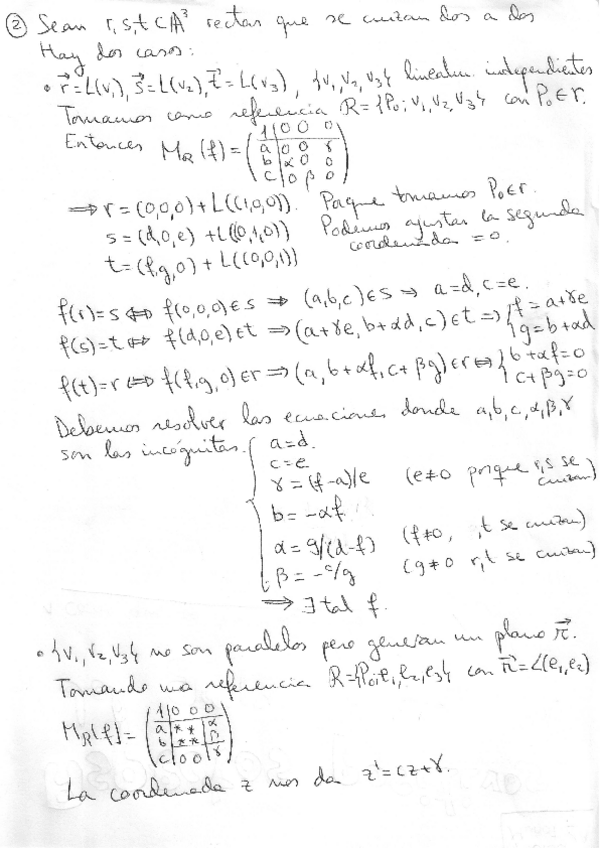 ② Sean r, s, t ⊂ A³ rectas que se cruzan dos a dos
Hay dos casos:
• r⃗ = L(v₁), s⃗ = L(v₂), t⃗ = L(v₃), {v₁, v₂, v₃} linealm. independientes
Tomamos como referencia R = {P₀; v₁, v₂, v₃} con P₀ ∈ r.
Entonces M_R(f) = (1 | 0 0 0
a | 0 0 γ
b | α 0 0
c | 0 β 0)
⟹ r = (0,0,0) + L((1,0,0)). Porque tomamos P₀ ∈ r.
s = (d,0,e) + L((0,1,0)) Podemos ajustar la segunda
t = (f,g,0) + L((0,0,1)) coordenada = 0.
f(r) = s ⟺ f(0,0,0) ∈ s ⟹ (a,b,c) ∈ s ⟹ a = d, c = e.
f(s) = t ⟺ f(d,0,e) ∈ t ⟹ (a+γe, b+αd, c) ∈ t ⟹ { f = a+γe
g = b+αd
f(t) = r ⟺ f(f,g,0) ∈ r ⟹ (a, b+αf, c+βg) ∈ r ⟺ { b+αf = 0
c+βg = 0
Debemos resolver las ecuaciones donde a, b, c, α, β, γ
son las incógnitas. { a = d.
c = e
γ = (f-a)/e (e ≠ 0 porque r, s se cruzan)
b = -αf
α = g/(d-f) (f ≠ 0, , t se cruzan)
β = -c/g (g ≠ 0 r, t se cruzan)
⟹ ∃ tal f.
• {v₁, v₂, v₃} no son paralelos pero generan un plano π⃗.
Tomando una referencia R = {P₀; e₁, e₂, e₃} con π⃗ = L(e₁, e₂)
M_R(f) = (1 | 0 0 0
a | * * | α
b | * * | β
c | 0 0 | γ)
La coordenada z nos da z' = cz + γ.